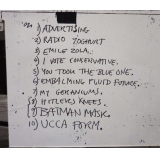 1) ADVERTISING
2) RADIO YOGHURT
3) EMILE ZOLA.
4) I VOTE CONSERVATIVE.
5) YOU TOOK THE BLUE ONE.
6) EMBALMING FLUID FUTURE.
7) MY GERANIUMS.
8) HITLER'S KNEES.
9) BATMAN MASK.
10) UCCA FORM.